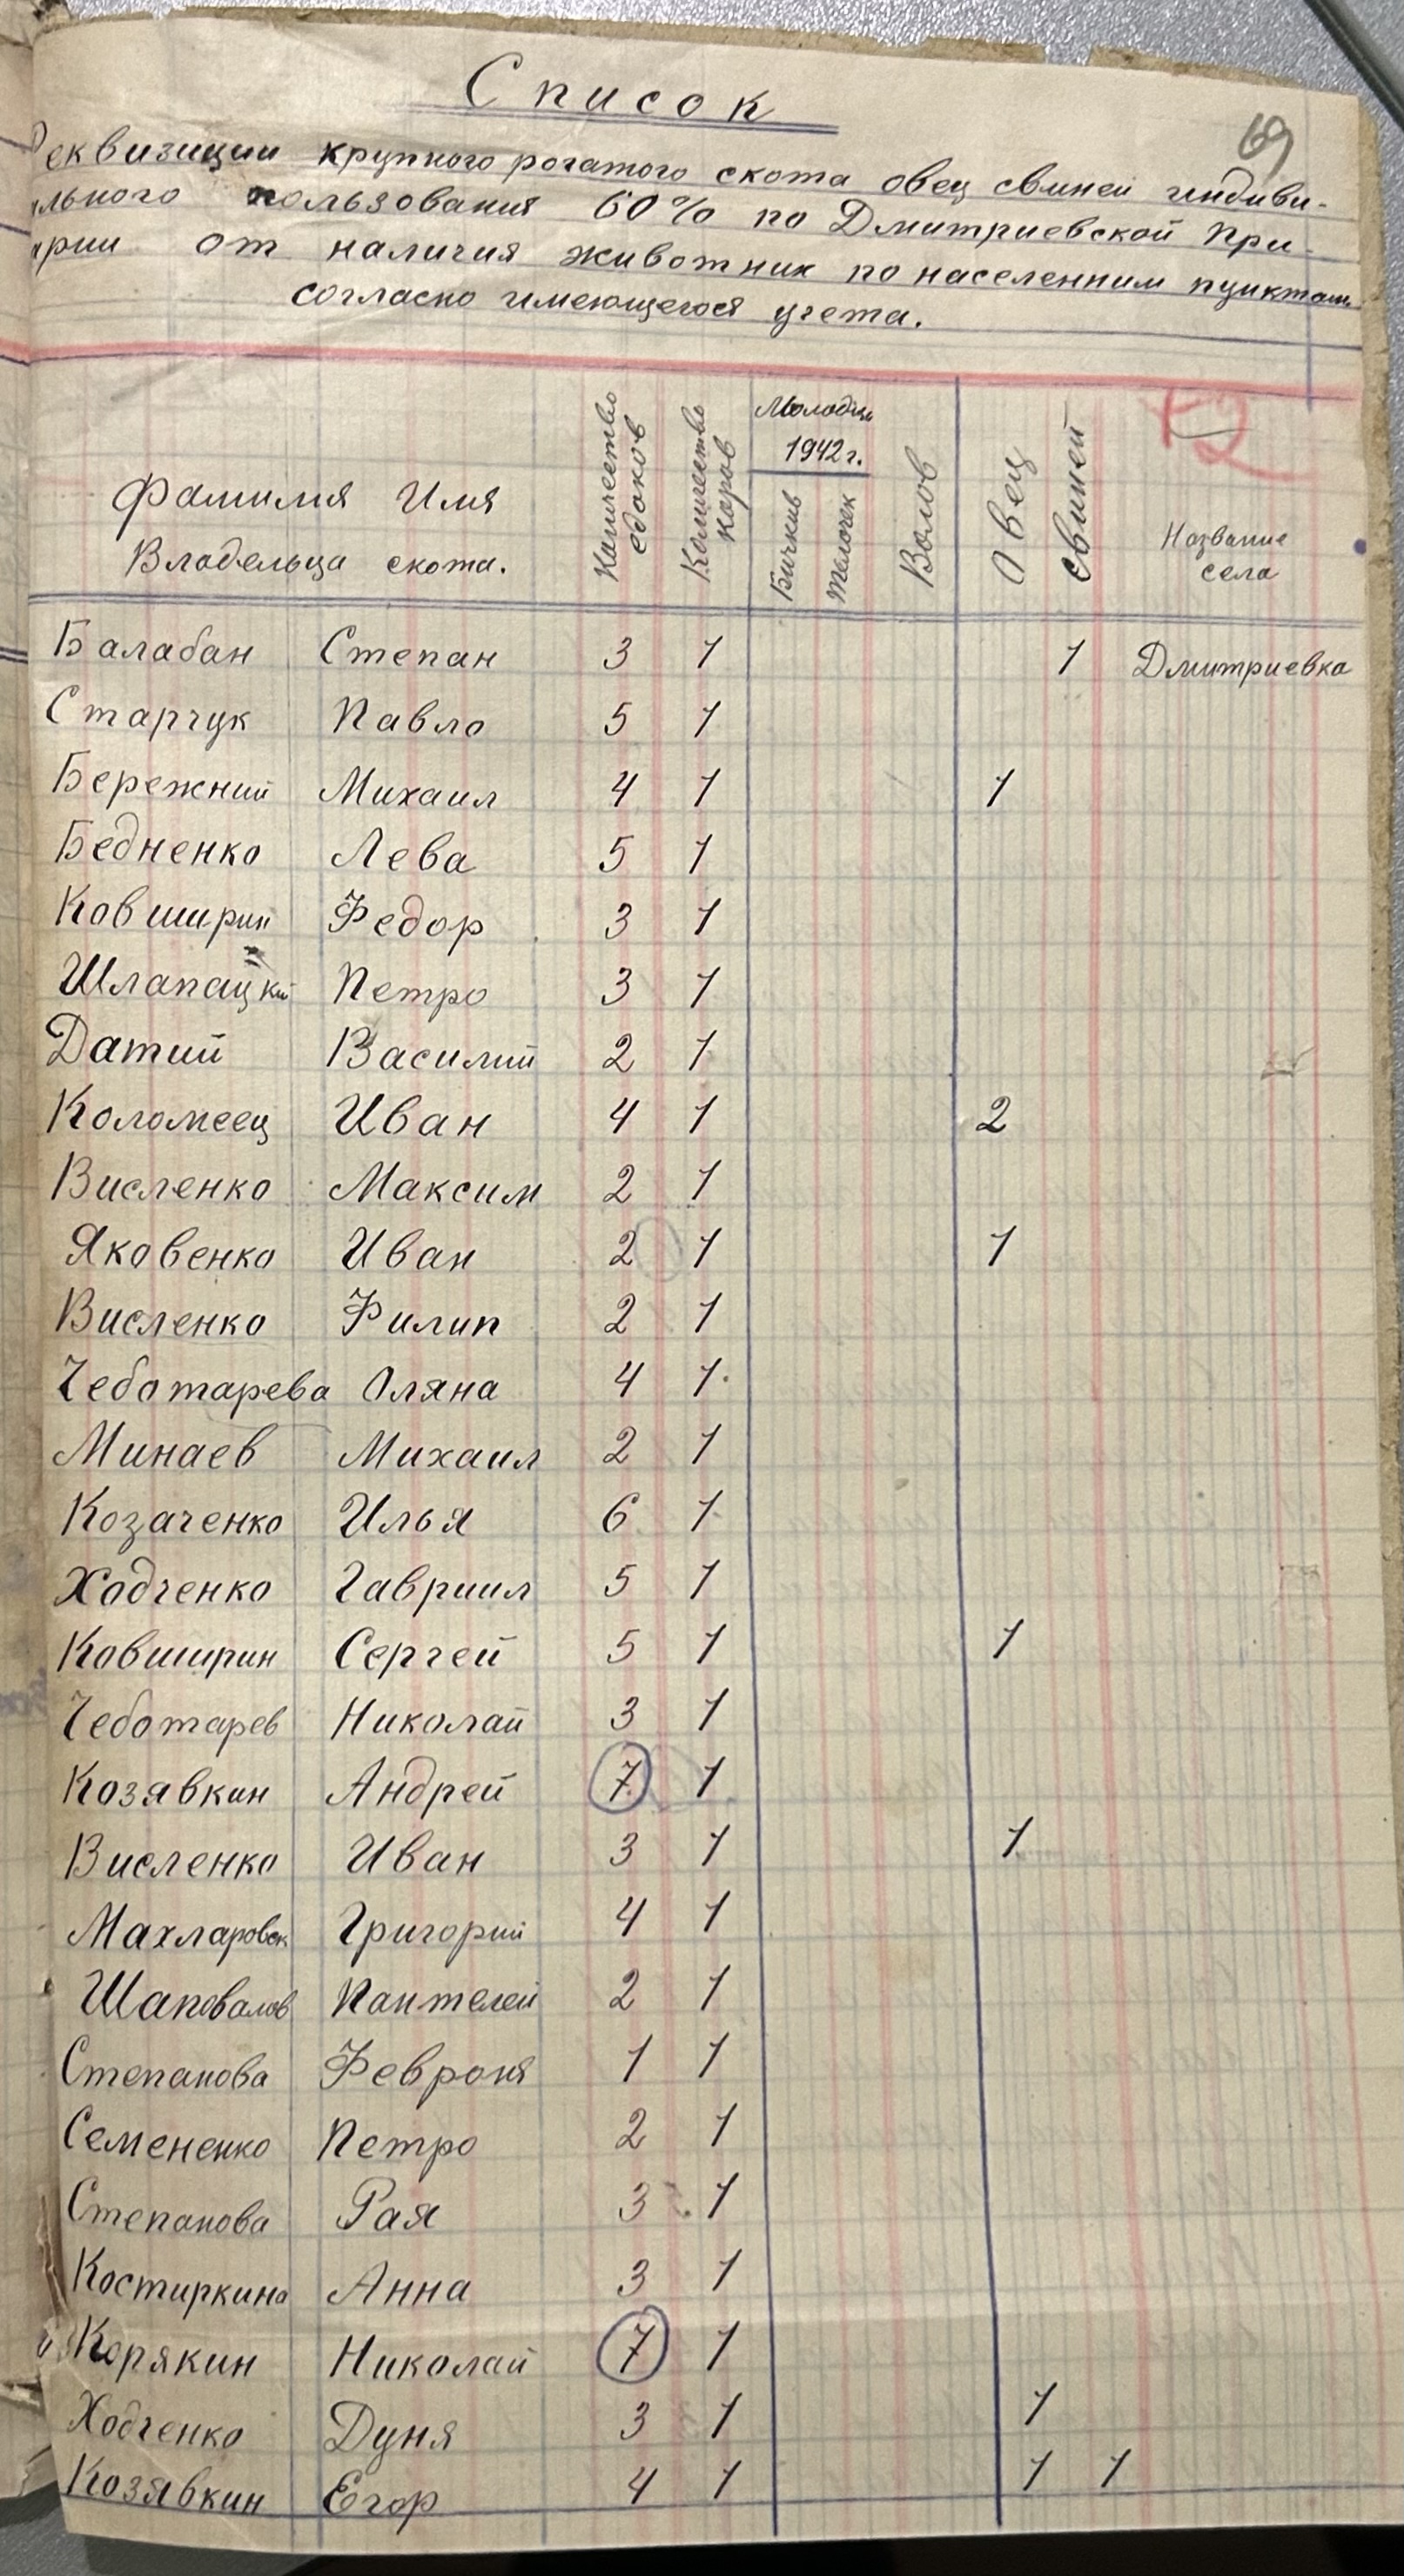 Список
69
Реквизиции крупного рогатого скота овец свиней индиви-
ального пользования 60% по Дмитриевской При-
арии от наличия животник по населенним пунктам
согласно имеющегося учета.
Фамилия Имя
Владельца скота.
Количество едоков
Количество каров
Молодн
1942 г.
Бичков
Телочек
Волов
Овец
Свиней
Название
села
Балабан Степан 3 1 1 Дмитриевка
Старчук Павло 5 1
Бережний Михаил 4 1 1
Бедненко Лева 5 1
Ковширин Федор 3 1
Шлапацкий Петро 3 1
Датий Василий 2 1
Коломеец Иван 4 1 2
Висленко Максим 2 1
Яковенко Иван 2 1 1
Висленко Филип 2 1
Чеботарева Оляна 4 1
Минаев Михаил 2 1
Козаченко Илья 6 1
Ходченко Гавриил 5 1
Ковширин Сергей 5 1 1
Чеботарев Николай 3 1
Козявкин Андрей 7 1
Висленко Иван 3 1 1
Махларовск Григорий 4 1
Шаповалов Пантелей 2 1
Степанова Февроня 1 1
Семененко Петро 2 1
Степанова Рая 3 1
Костиркина Анна 3 1
Корякин Николай 7 1
Ходченко Дуня 3 1 1
Козявкин Егор 4 1 1 1